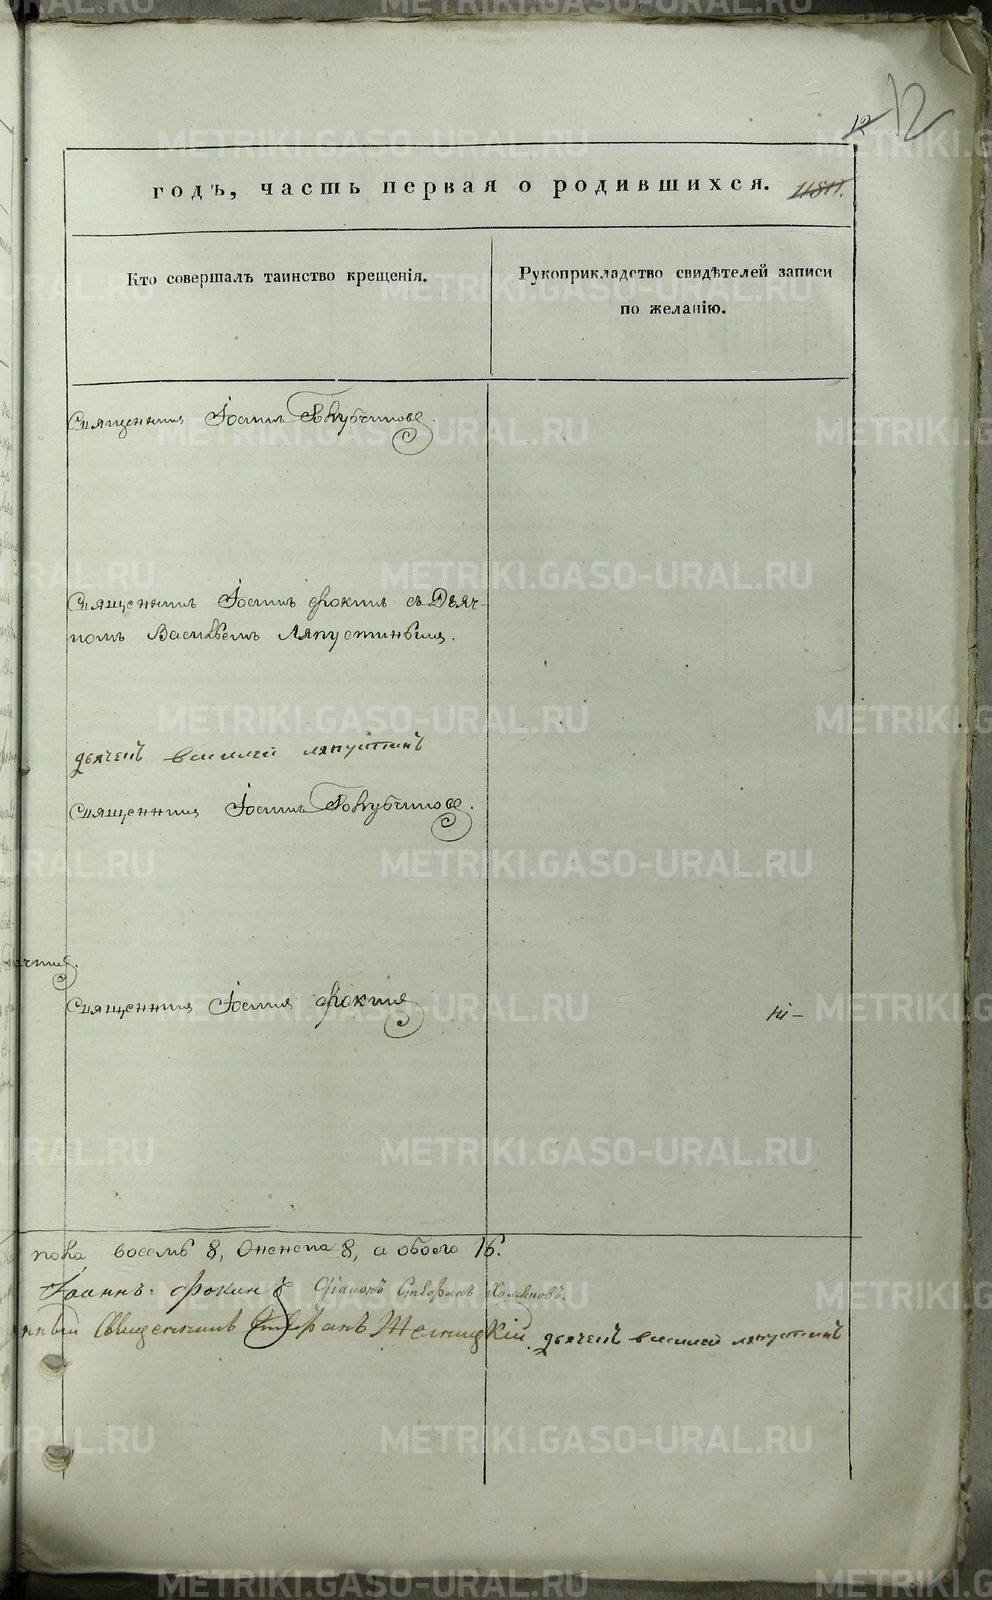 12 12
годъ, часть первая о родившихся.
Кто совершалъ таинство крещенія.
Рукоприкладство свидѣтелей записи
по желанію.
Священникъ Іоаннъ Голубчиковъ.
Священникъ Іоаннъ Фокинъ съ Дьяч-
комъ Васильемъ Ляпустинымъ.
дьячекъ василей ляпустинъ
Священникъ Іоаннъ Голубчиковъ.
Священникъ Іоаннъ Фокинъ
пола восемь 8, Женска 8, а обоего 16.
Іоаннъ Фокинъ Діаконъ Стефанъ
Священникъ Стефанъ дьячекъ василей ляпустинъ
METRIKI.GASO-URAL.RU